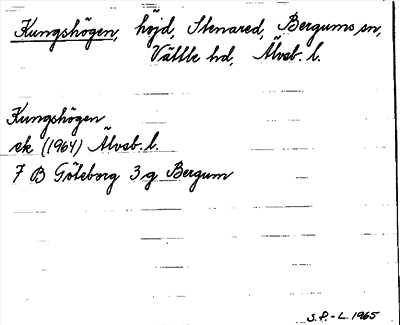 Kungshögen, höjd, Stenared, Bergums sn,
Vättle hd, Älvsb. l.
Kungshögen
ek (1964) Älvsb. l.
7 B Göteborg 3 g Bergum
S. P. - L. 1965